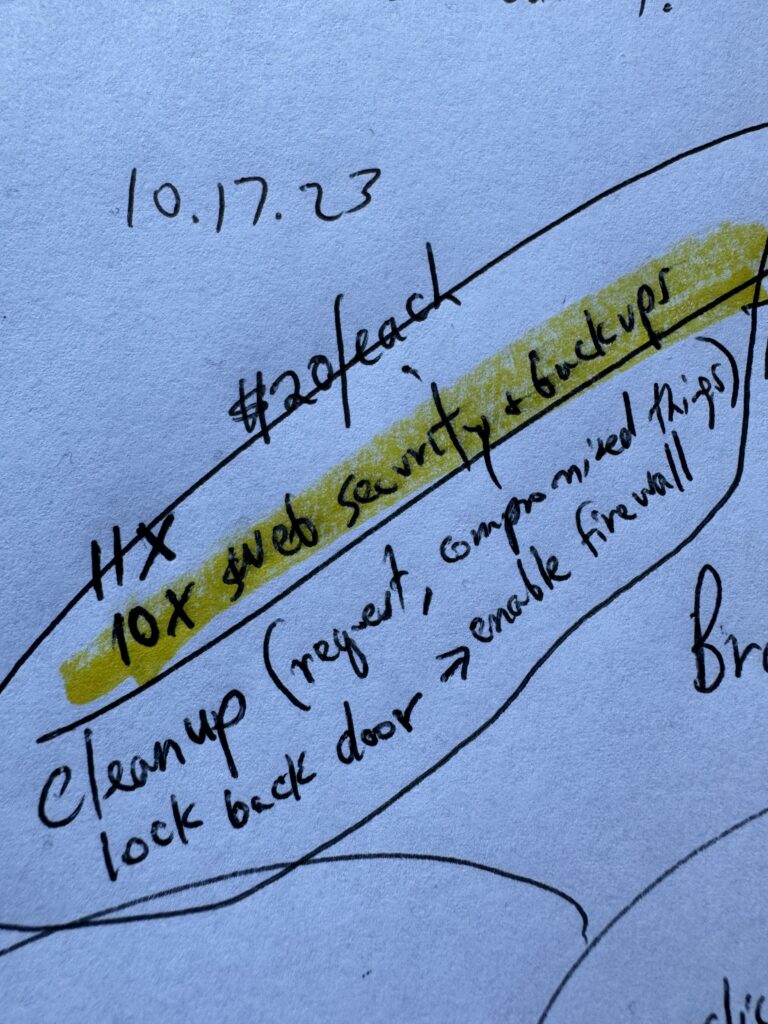 10.17.23
$20/each
11X
10X Web security + backups
Cleanup (request, compromised things)
lock back door → enable firewall
Bro